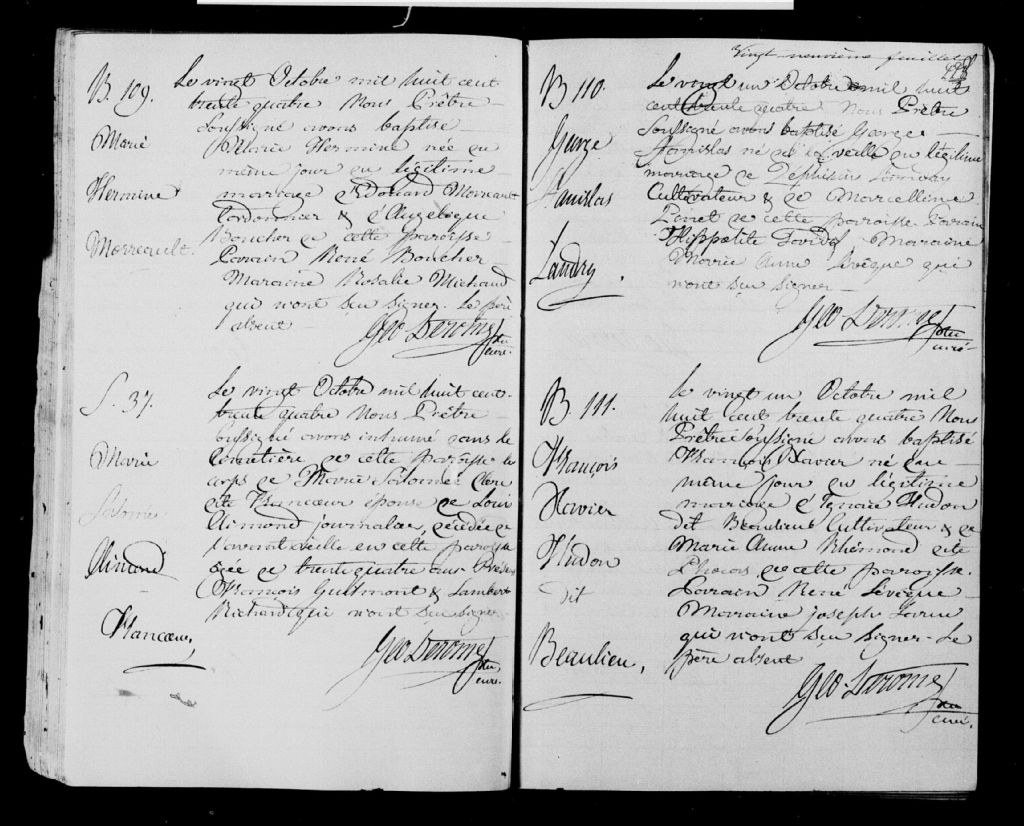 B. 109.
Marie
Hermine
Morreault.
Le vingt Octobre mil huit cent
trente quatre Nous Prêtre
Soussigné avons baptisé
Marie Hermine née ce
même jour du légitime
mariage d'Edouard Morreault
Cordonnier & d'Angelique
Boucher de cette paroisse
Parain René Boucher
Maraine Rosalie Michaud
qui n'ont su signer. le père
absent
Geo Derome ptre
curé.
S. 37.
Marie
Salomée
Aimond
Francœur,
Le vingt Octobre mil huit cent
trente quatre Nous Prêtre
Soussigné avons inhumé dans le
Cimetière de cette paroisse le
corps de Marie Salomée
dite Francœur épouse de Louis
Aimond journalier, décédée de
l'avant veille en cette paroisse
agée de trente quatre ans
François Guilmont & Lambert
Michaud qui n'ont su signer
Geo Derome ptre
curé.
Vingt neuvième feuillet
B 110.
George
Stanislas
Landry.
Le vingt un Octobre mil huit
cent trente quatre Nous Prêtre
Soussigné avons baptisé George
Stanislas né de la veille du légitime
mariage de Landry
Cultivateur & de Marcelline
de cette paroisse Parain
Hippolite Maraine
Marie Anne Levêque qui
n'ont su signer
Geo Derome ptre
curé
B. 111.
François
Xavier
Hudon
dit
Beaulieu,
Le vingt un Octobre mil
huit cent trente quatre Nous
Prêtre Soussigné avons baptisé
François Xavier né ce
même jour du légitime
mariage d'Ignace Hudon
dit Beaulieu Cultivateur & de
Marie Anne Phémond dite
de cette paroisse.
Parain René Levêque
Marraine Joseph
qui n'ont su signer. Le
père absent
Geo. Derome ptre
curé.